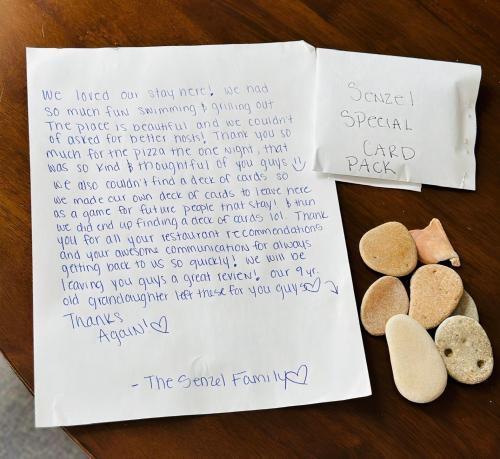 We loved our stay here! We had
so much fun swimming & grilling out
The place is beautiful and we couldn't
of asked for better hosts! Thank you so
much for the pizza the one night, that
was so kind & thoughtful of you guys
we also couldn't find a deck of cards so
we made our own deck of cards to leave here
as a game for future people that stay! & then
we did end up finding a deck of cards lol. Thank
you for all your restaurant recommendations
and your awesome communication for always
getting back to us so quickly! we will be
leaving you guys a great review! our 9 yr.
old grandaughter left these for you guys
Thanks
Again!
- The Senzel Family
Senzel
Special
Card
Pack